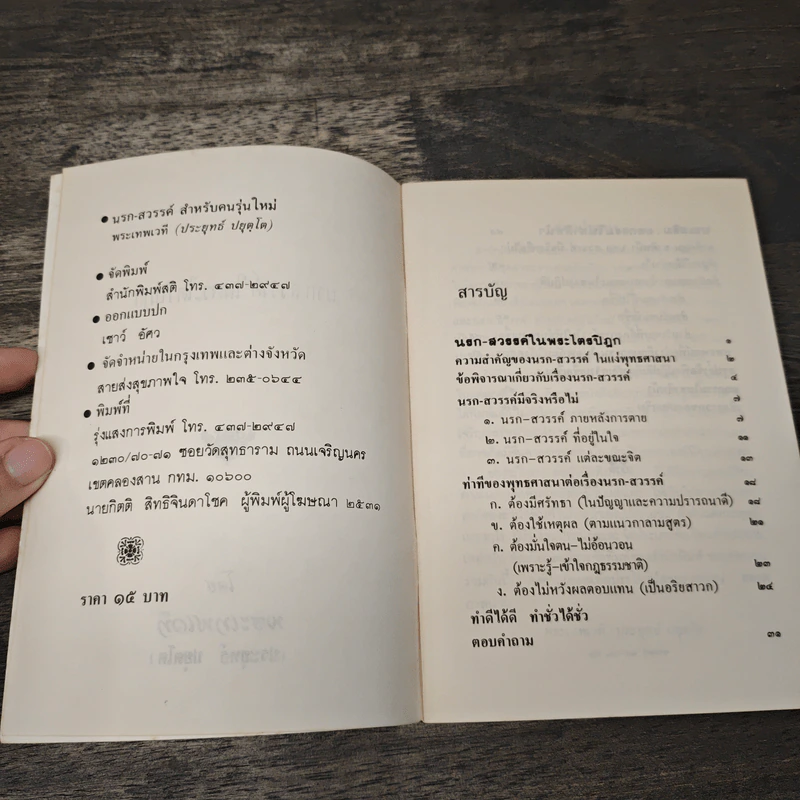 ● นรก-สวรรค์ สำหรับคนรุ่นใหม่
พระเทพเวที (ประยุทธ์ ปยุตฺโต)
● จัดพิมพ์
สำนักพิมพ์สติ โทร. ๔๓๗-๒๙๔๗
● ออกแบบปก
เชาว์ อัศว
● จัดจำหน่ายในกรุงเทพและต่างจังหวัด
สายส่งสุขภาพใจ โทร. ๒๓๕-๐๖๔๔
● พิมพ์ที่
รุ่งแสงการพิมพ์ โทร. ๔๓๗-๒๙๔๗
๑๒๓๐/๗๐-๗๑ ซอยวัดสุทธาราม ถนนเจริญนคร
เขตคลองสาน กทม. ๑๐๖๐๐
นายกิตติ สิทธิจินดาโชค ผู้พิมพ์ผู้โฆษณา ๒๕๓๑
ราคา ๑๕ บาท
สารบัญ
นรก-สวรรค์ในพระไตรปิฎก ๑
ความสำคัญของนรก-สวรรค์ ในแง่พุทธศาสนา ๒
ข้อพิจารณาเกี่ยวกับเรื่องนรก-สวรรค์ ๔
นรก-สวรรค์มีจริงหรือไม่ ๗
๑. นรก-สวรรค์ ภายหลังการตาย ๗
๒. นรก-สวรรค์ ที่อยู่ในใจ ๑๑
๓. นรก-สวรรค์ แต่ละขณะจิต ๑๓
ท่าทีของพุทธศาสนาต่อเรื่องนรก-สวรรค์ ๑๘
ก. ต้องมีศรัทธา (ในปัญญาและความปรารถนาดี) ๑๘
ข. ต้องใช้เหตุผล (ตามแนวกาลามสูตร) ๒๑
ค. ต้องมั่นใจตน-ไม่อ้อนวอน
(เพราะรู้-เข้าใจกฎธรรมชาติ) ๒๓
ง. ต้องไม่หวังผลตอบแทน (เป็นอริยสาวก) ๒๔
ทำดีได้ดี ทำชั่วได้ชั่ว
ตอบคำถาม ๓๑